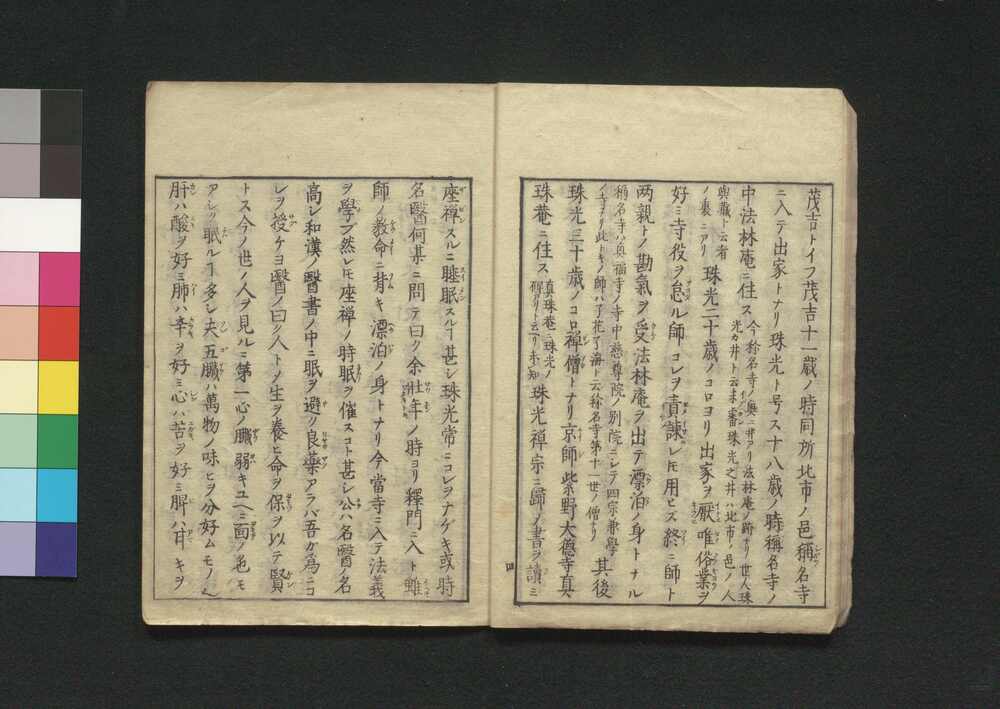 茂吉トイフ茂吉十一歳ノ時同所北市ノ邑稱名寺
ニ入テ出家トナリ珠光ト号ス十八歳ノ時稱名寺ノ
中法林庵ニ住ス今称名寺ノ奥ニ井アリ法林庵ノ跡ナリ世人珠
光カ井ト云未審珠光之井ハ北市ノ邑ノ人
與藏ト云者
ノ裏ニアリ珠光二十歳ノコロヨリ出家ヲ厭唯俗業ヲ
好ミ寺役ヲ怠ル師コレヲ責諫レ𪜈用ヒズ終ニ師ト
両親トノ勘氣ヲ受法林庵ヲ出テ漂泊ノ身トナル
稱名寺ハ眞福寺ノ寺中慈尊院ノ別院ニシテ四宗兼學
ノ寺ナリ此トキノ師ハ了花了海ト云称名寺第十一世ノ僧ナリ其後
珠光三十歳ノコロ禅僧トナリ京師紫野大德寺真
珠菴ニ住ス真珠菴ハ珠光ノ
珠光禅宗ニ歸ノ書ヲ讀ミ
座禅スルニ睡眠スルヿ甚シ珠光常ニコレヲナゲキ或時
名醫何某ニ問テ曰ク余壮年ノ時ヨリ釋門ニ入ト雖
師ノ教命ニ背キ漂泊ノ身トナリ今當寺ニ入テ法義
ヲ學ブ然レ𪜈座禅ノ時眠ヲ催スコト甚シ公ハ名醫ノ名
高シ和漢ノ醫書ノ中ニ眠ヲ避ク良藥アラバ吾カ為ニコ
レヲ授ケヨ醫ノ曰ク人トノ生ヲ養ヒ命ヲ保ヲ以テ賢
トス今ノ世ノ人ヲ見ルニ第一心ノ臓弱キユヘニ面ノ色モ
アシク眠ルヿ多シ夫五臓ハ萬物ノ味ヒヲ分好ムモノ也
肝ハ酸ヲ好ミ肺ハ辛ヲ好ミ心ハ苦ヲ好ミ脾ハ甘キヲ
四